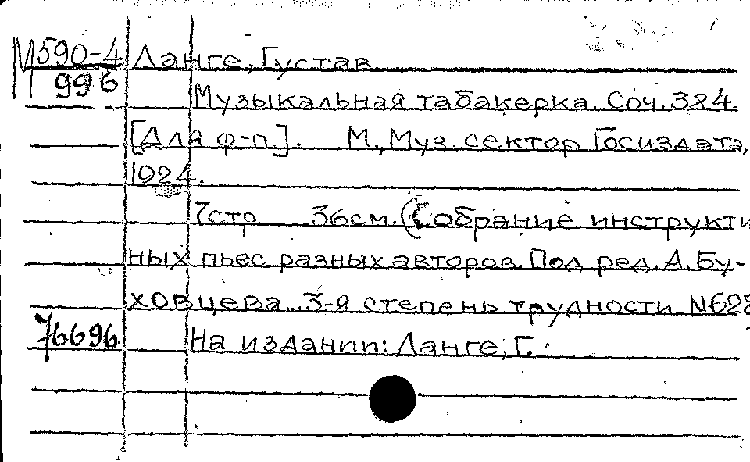 М 590-4 Ланге, Густав
996
Музыкальная табакерка. Соч. 324.
[Для ф-п.]. М., Муз. сектор Госиздата,
1924.
7 стр 36 см. (Собрание инструкти
ных пьес разных авторов. Под ред. А. Бу-
ховцева. 3-я степень трудности №628
76696 На издании: Ланге, Г.